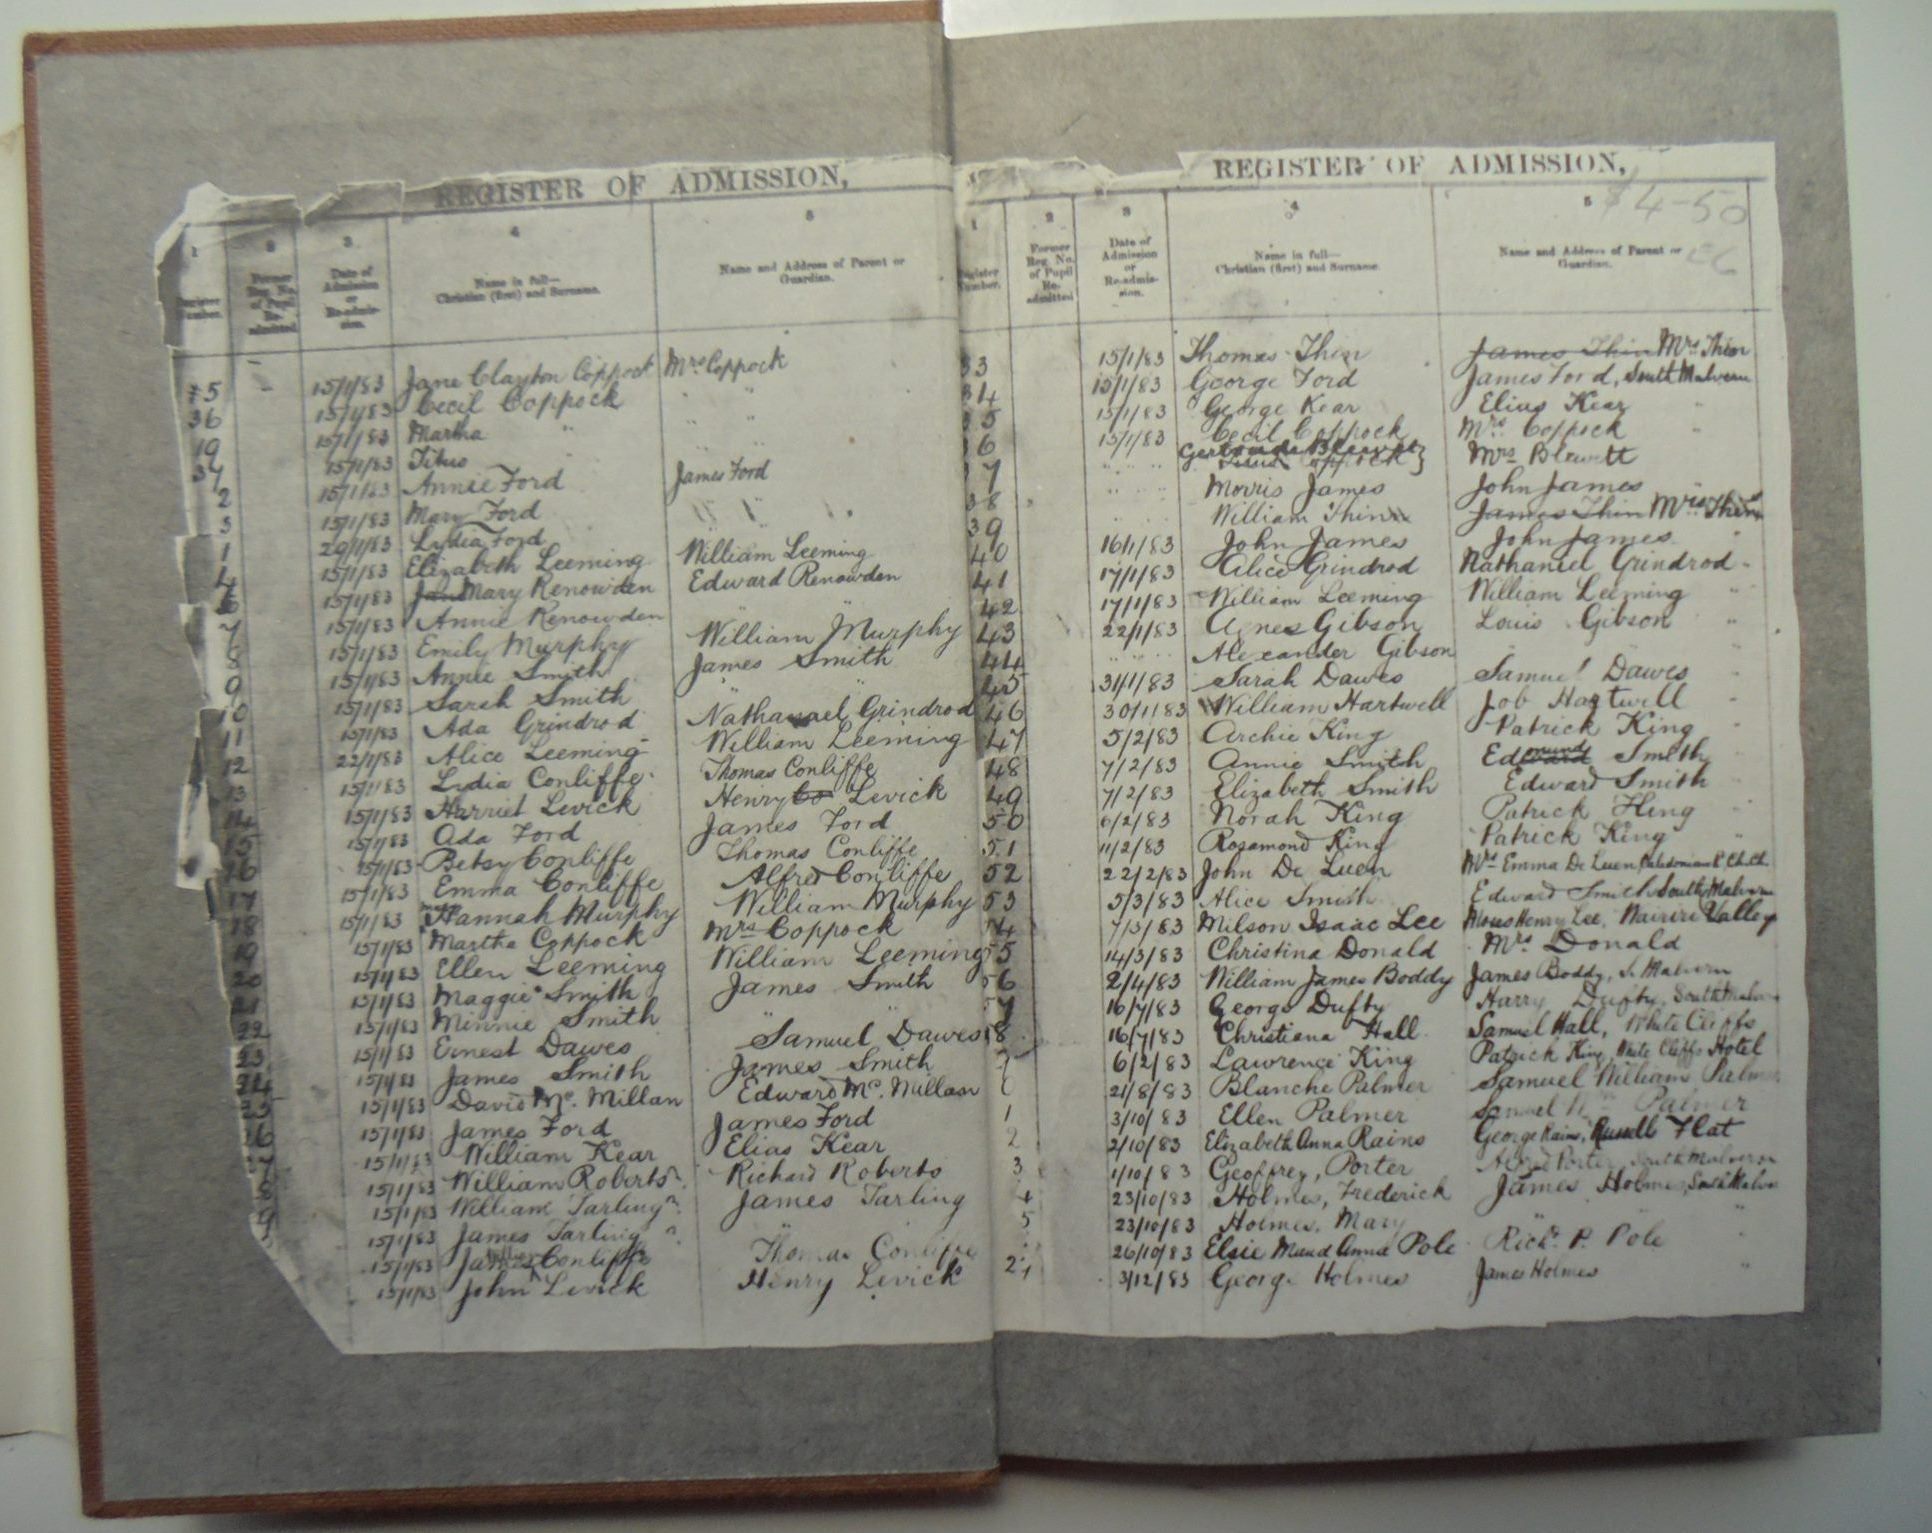 REGISTER OF ADMISSION,
1 2 3 4 5
Register Number.
Former Reg. No. of Pupil Re-admitted.
Date of Admission or Re-admission.
Name in full— Christian (first) and Surname.
Name and Address of Parent or Guardian.
15/1/83 Jane Clayton Coppock Mrs Coppock
36 15/1/83 Cecil Coppock " "
19 15/1/83 Martha " " "
37 15/1/83 Titus
2 15/1/83 Annie Ford James Ford
3 15/1/83 Mary Ford " "
1 29/1/83 Lydia Ford
4 15/1/83 Elizabeth Leeming William Leeming
15/1/83 Mary Renowden Edward Renowden
15/1/83 Annie Renowden " "
7 15/1/83 Emily Murphy William Murphy
8 15/1/83 Annie Smith James Smith
9 15/1/83 Sarah Smith " "
10 15/1/83 Ada Grindrod Nathanael Grindrod
11 22/1/83 Alice Leeming William Leeming
12 15/1/83 Lydia Conliffe Thomas Conliffe
13 15/1/83 Harriet Levick Henry Levick
14 15/1/83 Ada Ford James Ford
15 15/1/83 Betsy Conliffe Thomas Conliffe
16 15/1/83 Emma Conliffe Alfred Conliffe
17 15/1/83 Hannah Murphy William Murphy
18 15/1/83 Martha Coppock Mrs Coppock
19 15/1/83 Ellen Leeming William Leeming
20 15/1/83 Maggie Smith James Smith
21 15/1/83 Minnie Smith " "
22 15/1/83 Ernest Dawes Samuel Dawes
23 15/1/83 James Smith James Smith
24 15/1/83 David Mc. Millan Edward Mc. Millan
15/1/83 James Ford James Ford
15/1/83 William Kear Elias Kear
15/1/83 William Roberts Richard Roberts
15/1/83 William Tarling James Tarling
15/1/83 James Tarling " "
15/1/83 Conliffe Thomas Conliffe
15/1/83 John Levick Henry Levick
REGISTER OF ADMISSION,
$4-50
1 2 3 4 5
Register Number.
Former Reg. No. of Pupil Re-admitted
Date of Admission or Re-admission.
Name in full— Christian (first) and Surname.
Name and Address of Parent or Guardian.
33 15/1/83 Thomas Thin James Thin Mrs Thin
34 15/1/83 George Ford James Ford, South Malvern
35 15/1/83 George Kear Elias Kear "
36 15/1/83 Cecil Coppock Mrs Coppock "
37 " " " Gertrude Blewett Titus Coppock Mrs Blewett
38 " " " Morris James John James
39 " " " William Thin James Thin Mrs Thin
40 16/1/83 John James John James "
41 17/1/83 Alice Grindrod Nathaniel Grindrod "
42 17/1/83 William Leeming William Leeming "
43 22/1/83 Agnes Gibson Louis Gibson "
44 " " " Alexander Gibson
45 31/1/83 Sarah Dawes Samuel Dawes "
46 30/1/83 William Hartwell Job Hartwell "
47 5/2/83 Archie King Patrick King "
48 7/2/83 Annie Smith Edmund Smith "
49 7/2/83 Elizabeth Smith Edward Smith
50 6/2/83 Norah King Patrick King "
51 11/2/83 Rosamond King Patrick King "
52 22/2/83 John De Luen Mrs Emma De Luen,
53 5/3/83 Alice Smith Edward Smith South Malvern
54 7/3/83 Milson Isaac Lee Henry Lee, Wairiri Valley
55 14/3/83 Christina Donald Mrs Donald
56 2/4/83 William James Boddy James Boddy, S. Malvern
57 16/7/83 George Dufty Harry Dufty, South Malvern
58 16/7/83 Christiana Hall Samuel Hall, White Cliffs
6/2/83 Lawrence King Patrick King, White Cliffs Hotel
21/8/83 Blanche Palmer Samuel William Palmer
1 3/10/83 Ellen Palmer Samuel Wm Palmer
2 2/10/83 Elizabeth Anna Rains George Rains, Russells Flat
3 1/10/83 Geoffrey, Porter Alfred Porter, South Malvern
4 23/10/83 Holmes, Frederick James Holmes, South Malvern
5 23/10/83 Holmes, Mary " "
26/10/83 Elsie Maud Anna Pole Richd P. Pole
3/12/83 George Holmes James Holmes "